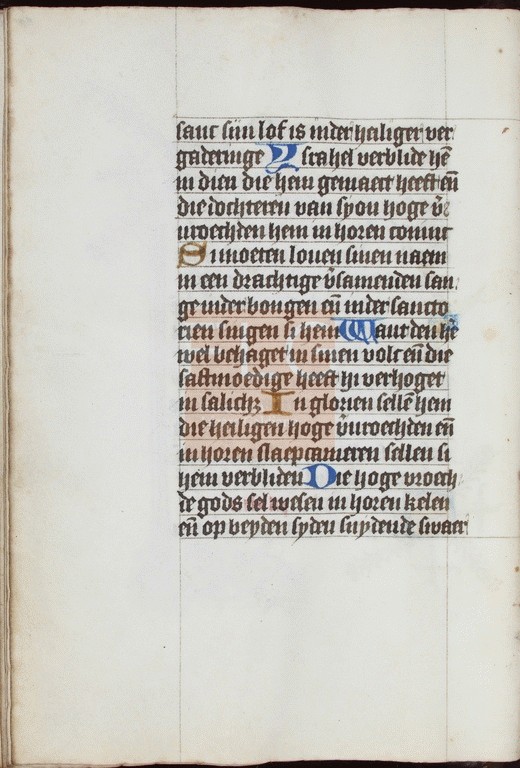 sanc siin lof is inder heiliger ver
gaderinge Israhel verblide hē
in dien die hem gemaect heeft eñ
die dochteren van syon hoge v̄
uroechden hem in horen coninc
Si moeten louen sinen naem
in een drachtige v̄samenden san
ge inder bongen eñ inder sancto
rien singen si hem Want den hē
wel behaget in sinen volc eñ die
saftmoedige heeft hi verhoget
in salichz In glorien sellē hem
die heiligen hoge v̄uroechden eñ
in horen slaepcameren sellen si
hem verbliden Die hoge vroech
de gods sel wesen in horen kelen
eñ op beyden syden snydende swaer